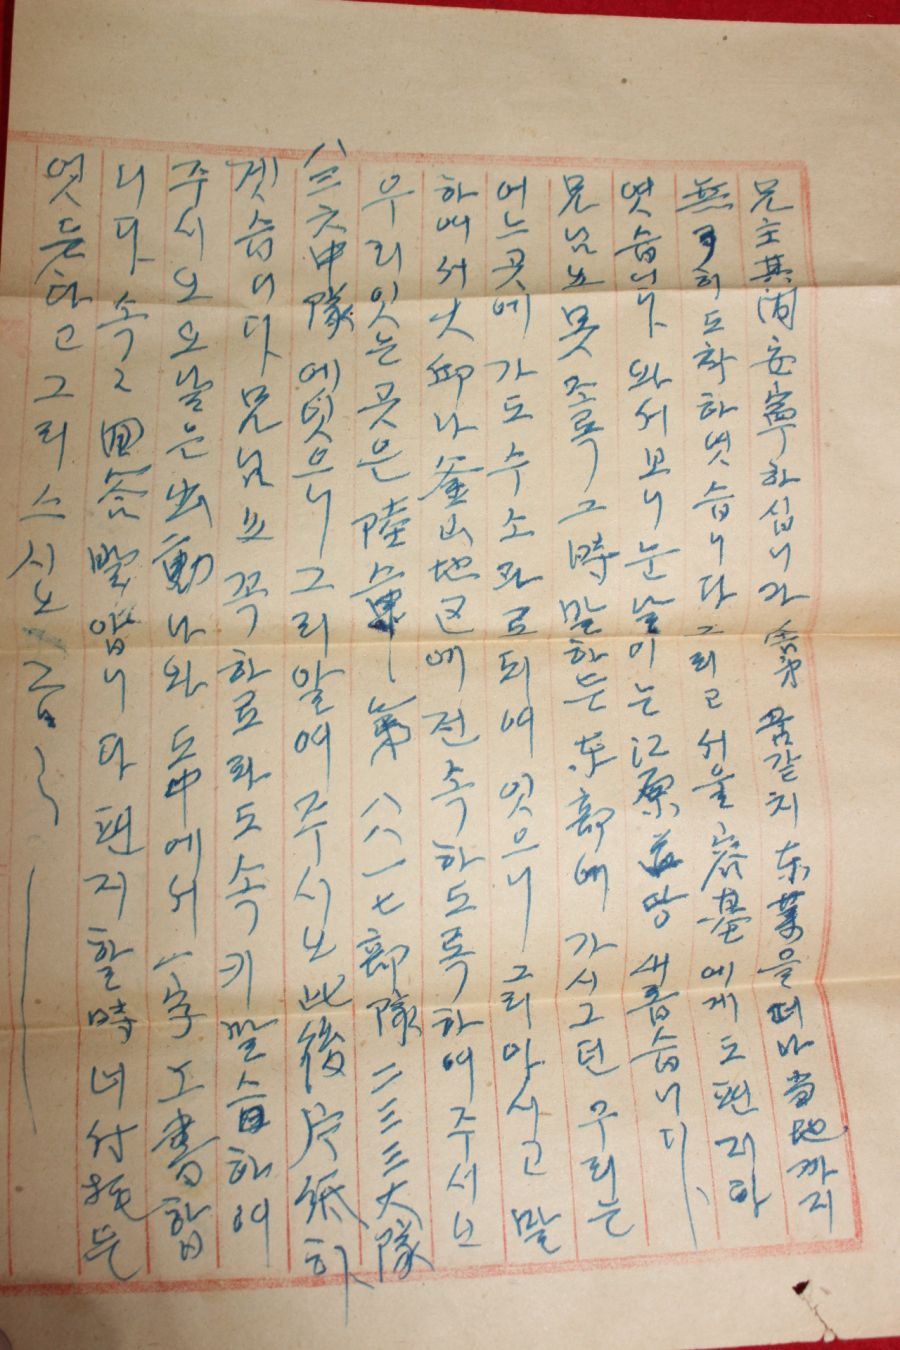 兄主其間 安寧하십니까 舍弟 꿈같치 东菜을 떠나 当地까지
無事히 도착하엿습니다 그리고 서울 容基에게도 편지하
엿습니다 와서 보니 눈날이는 江原道 땅 새롭습니다
兄님 그 時 말하든 东部에 가시그던 우리는
어느 곳에 가도 수소 되여 잇으니 그리 아시고 말
하여서 大邱나 釜山地区에 전속하도록 하여 주서요
우리 잇는 곳은 陸軍 第八八一七部隊 二三三大隊
三六中隊에 잇으니 그리 알여 주시요 此後 片紙하
겟습니다 兄님 꼭 하료라도 속키 말슴하여
주시요 오날은 出動 나와 도中에서 一字 上書합
니다 속々 回答 발압니다 편지할 時
엿든다고 그리 스시요 끝